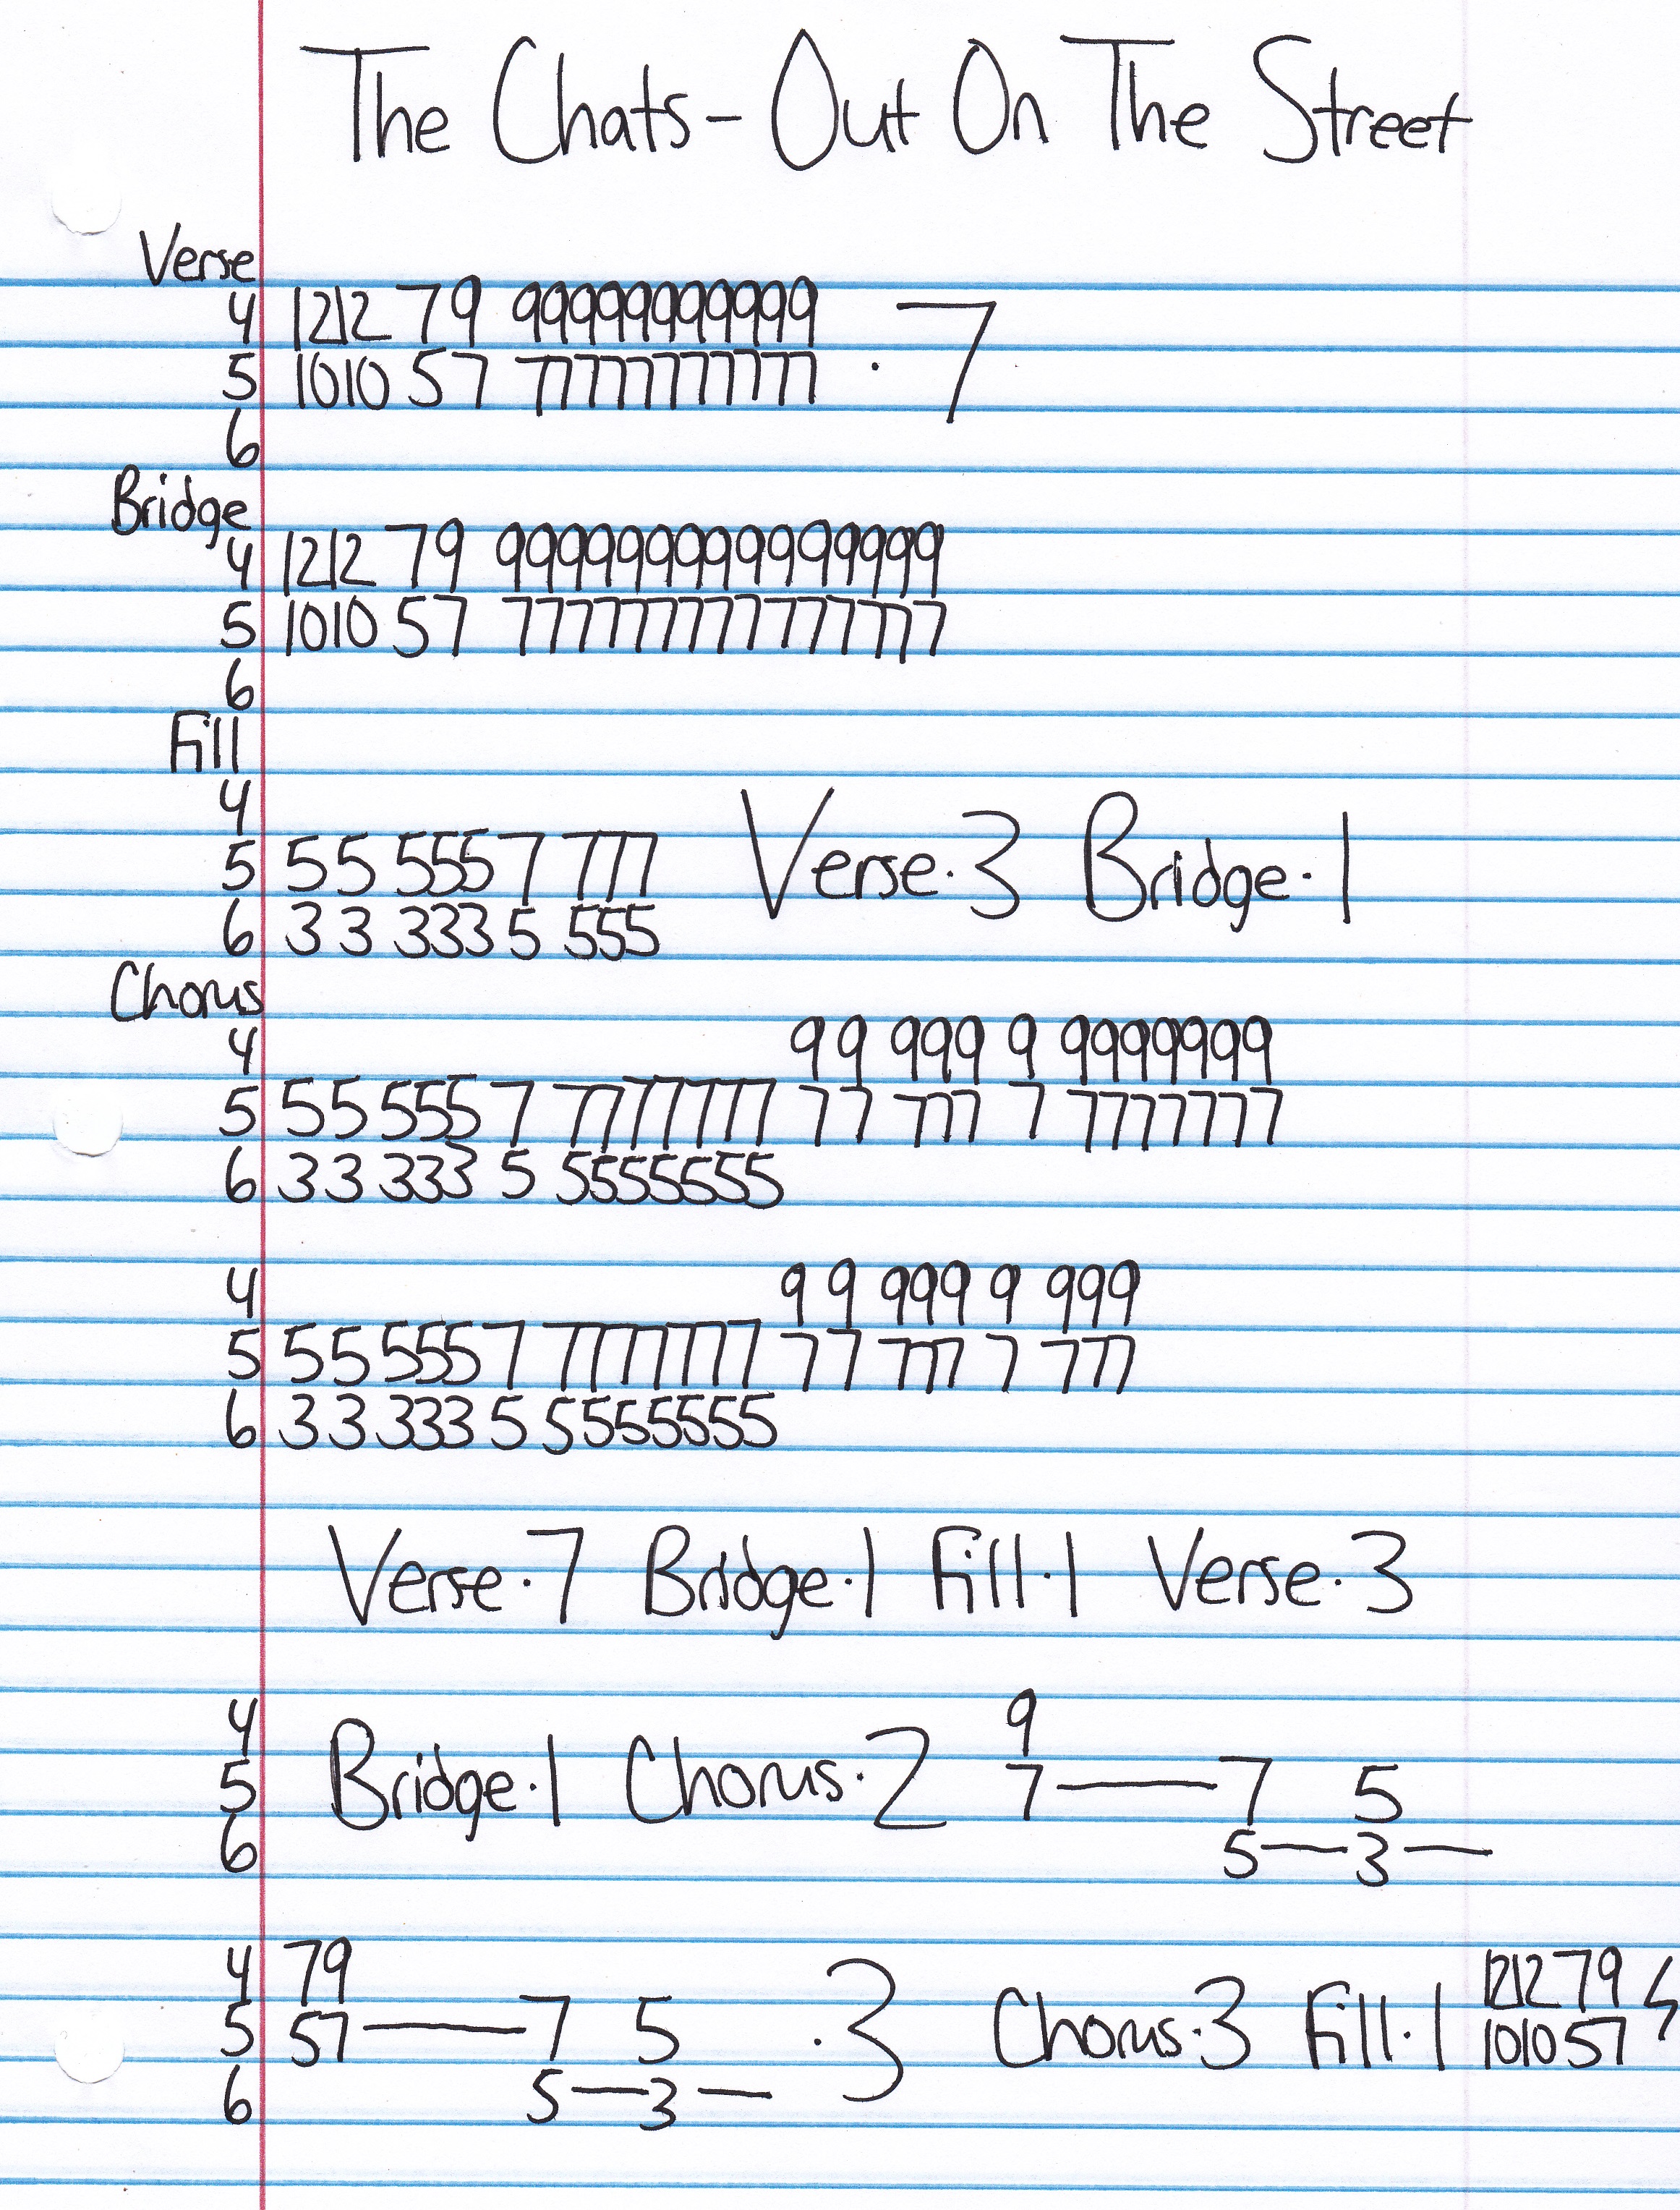 The Chats - Out On The Street
Verse
4 1212 79 99999999999
5 1010 57 77777777777 · 7
6
Bridge
4 1212 79 999999999999999
5 1010 57 777777777777777
6
Fill
4
5 5 5 555 7 777 Verse·3 Bridge·1
6 3 3 333 5 555
Chorus
4 9 9 999 9 9999999
5 5 5 555 7 7777777 7 7 777 7 7777777
6 3 3 333 5 5555555
4 9 9 999 9 999
5 5 5 555 7 7777777 7 7 777 7 777
6 3 3 333 5 5555555
Verse·7 Bridge·1 Fill·1 Verse·3
4 9
5 Bridge·1 Chorus·2 7—7 5
6 5—3—
4 79 1212 79
5 57—7 5 ·3 Chorus·3 Fill·1 1010 57
6 5—3—